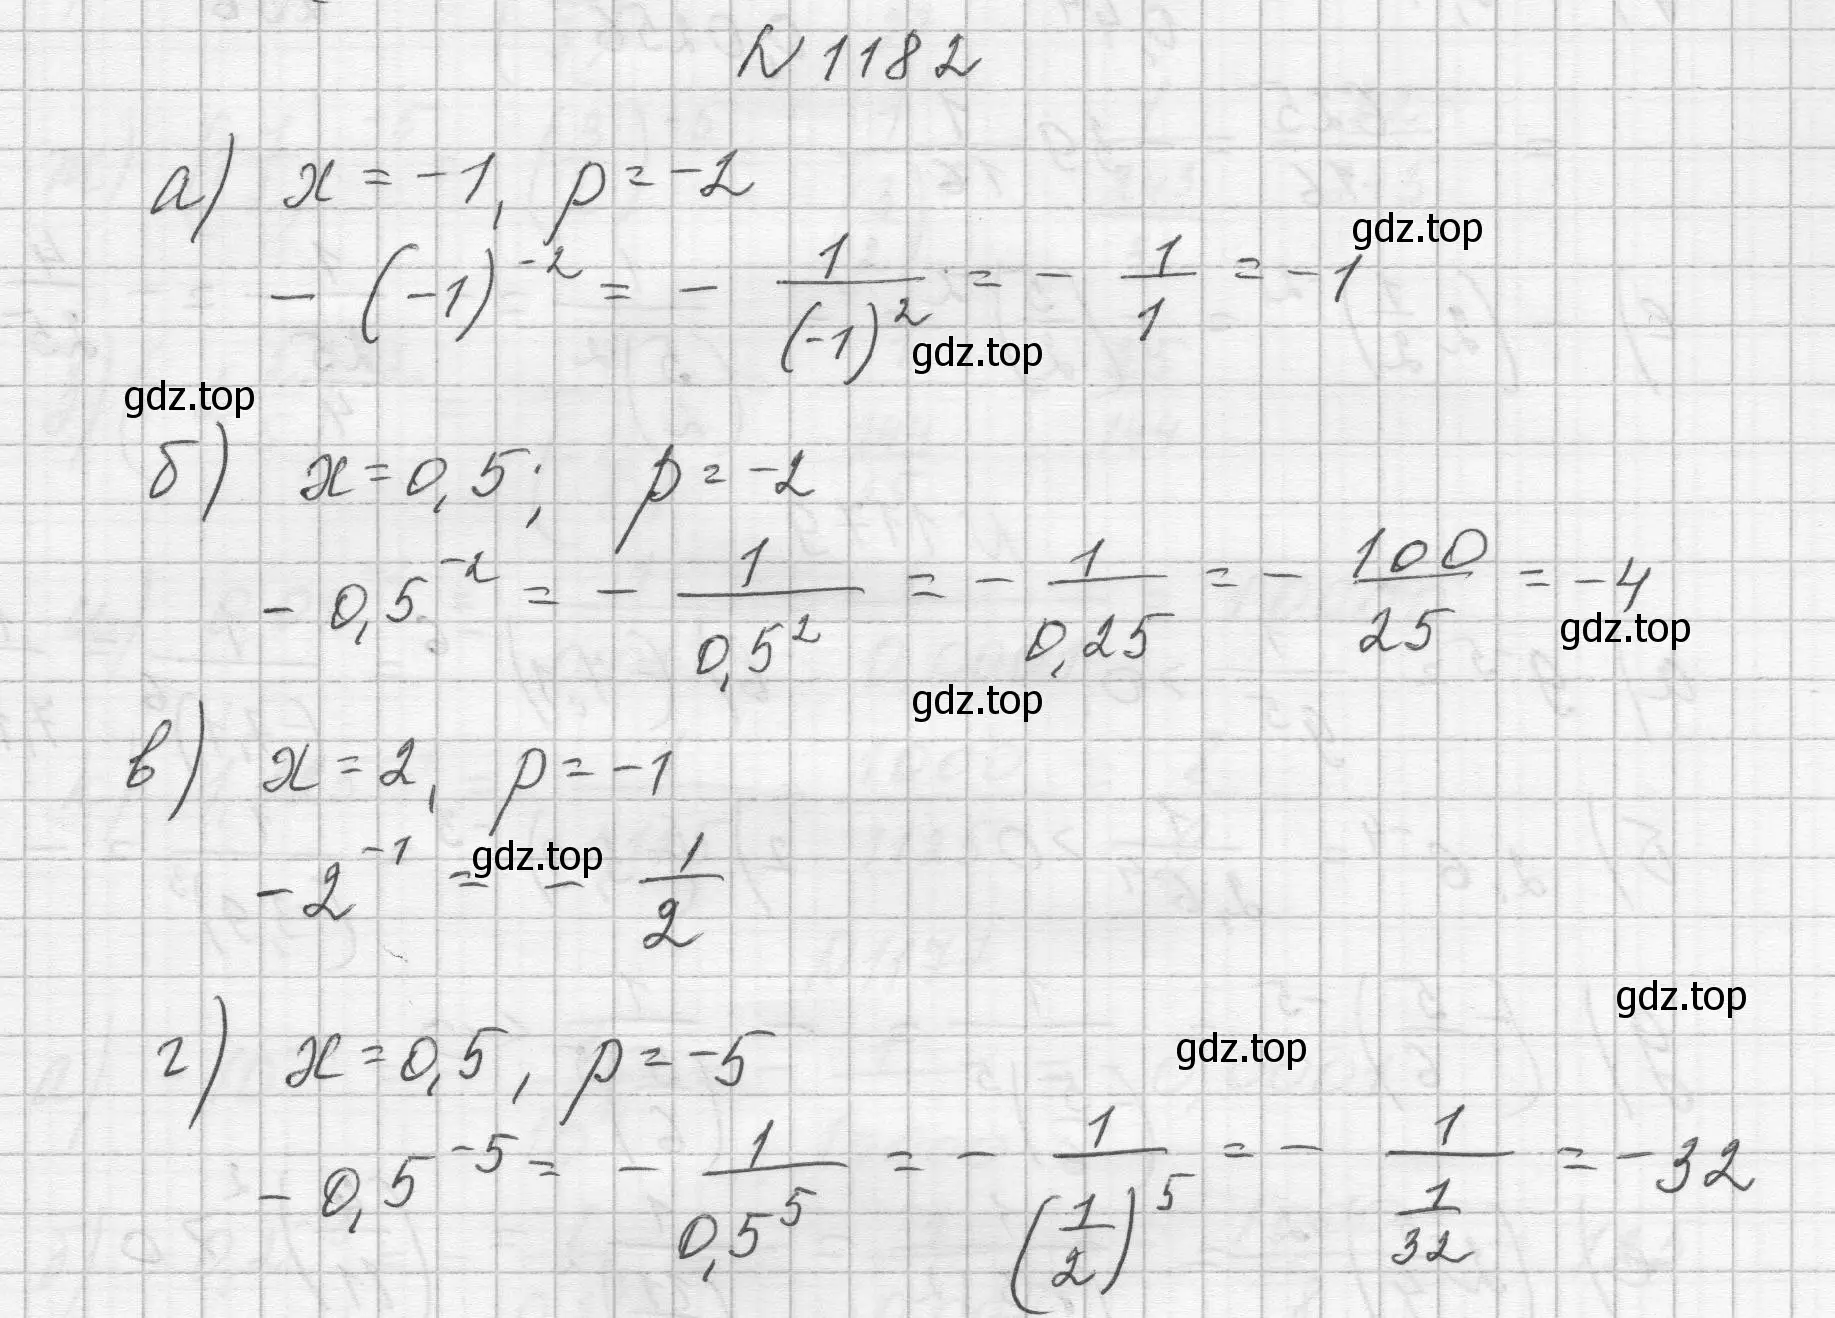 № 1182
а) x = -1, p = -2
gdz.top
- (-1)^{-2} = - \frac{1}{(-1)^2} = - \frac{1}{1} = -1
gdz.top
gdz.top
б) x = 0,5; p = -2
- 0,5^{-2} = - \frac{1}{0,5^2} = - \frac{1}{0,25} = - \frac{100}{25} = -4
gdz.top
gdz.top
в) x = 2, p = -1
- 2^{-1} = - \frac{1}{2}
gdz.top
gdz.top
г) x = 0,5, p = -5
gdz.top
- 0,5^{-5} = - \frac{1}{0,5^5} = - \frac{1}{(\frac{1}{2})^5} = - \frac{1}{\frac{1}{32}} = -32